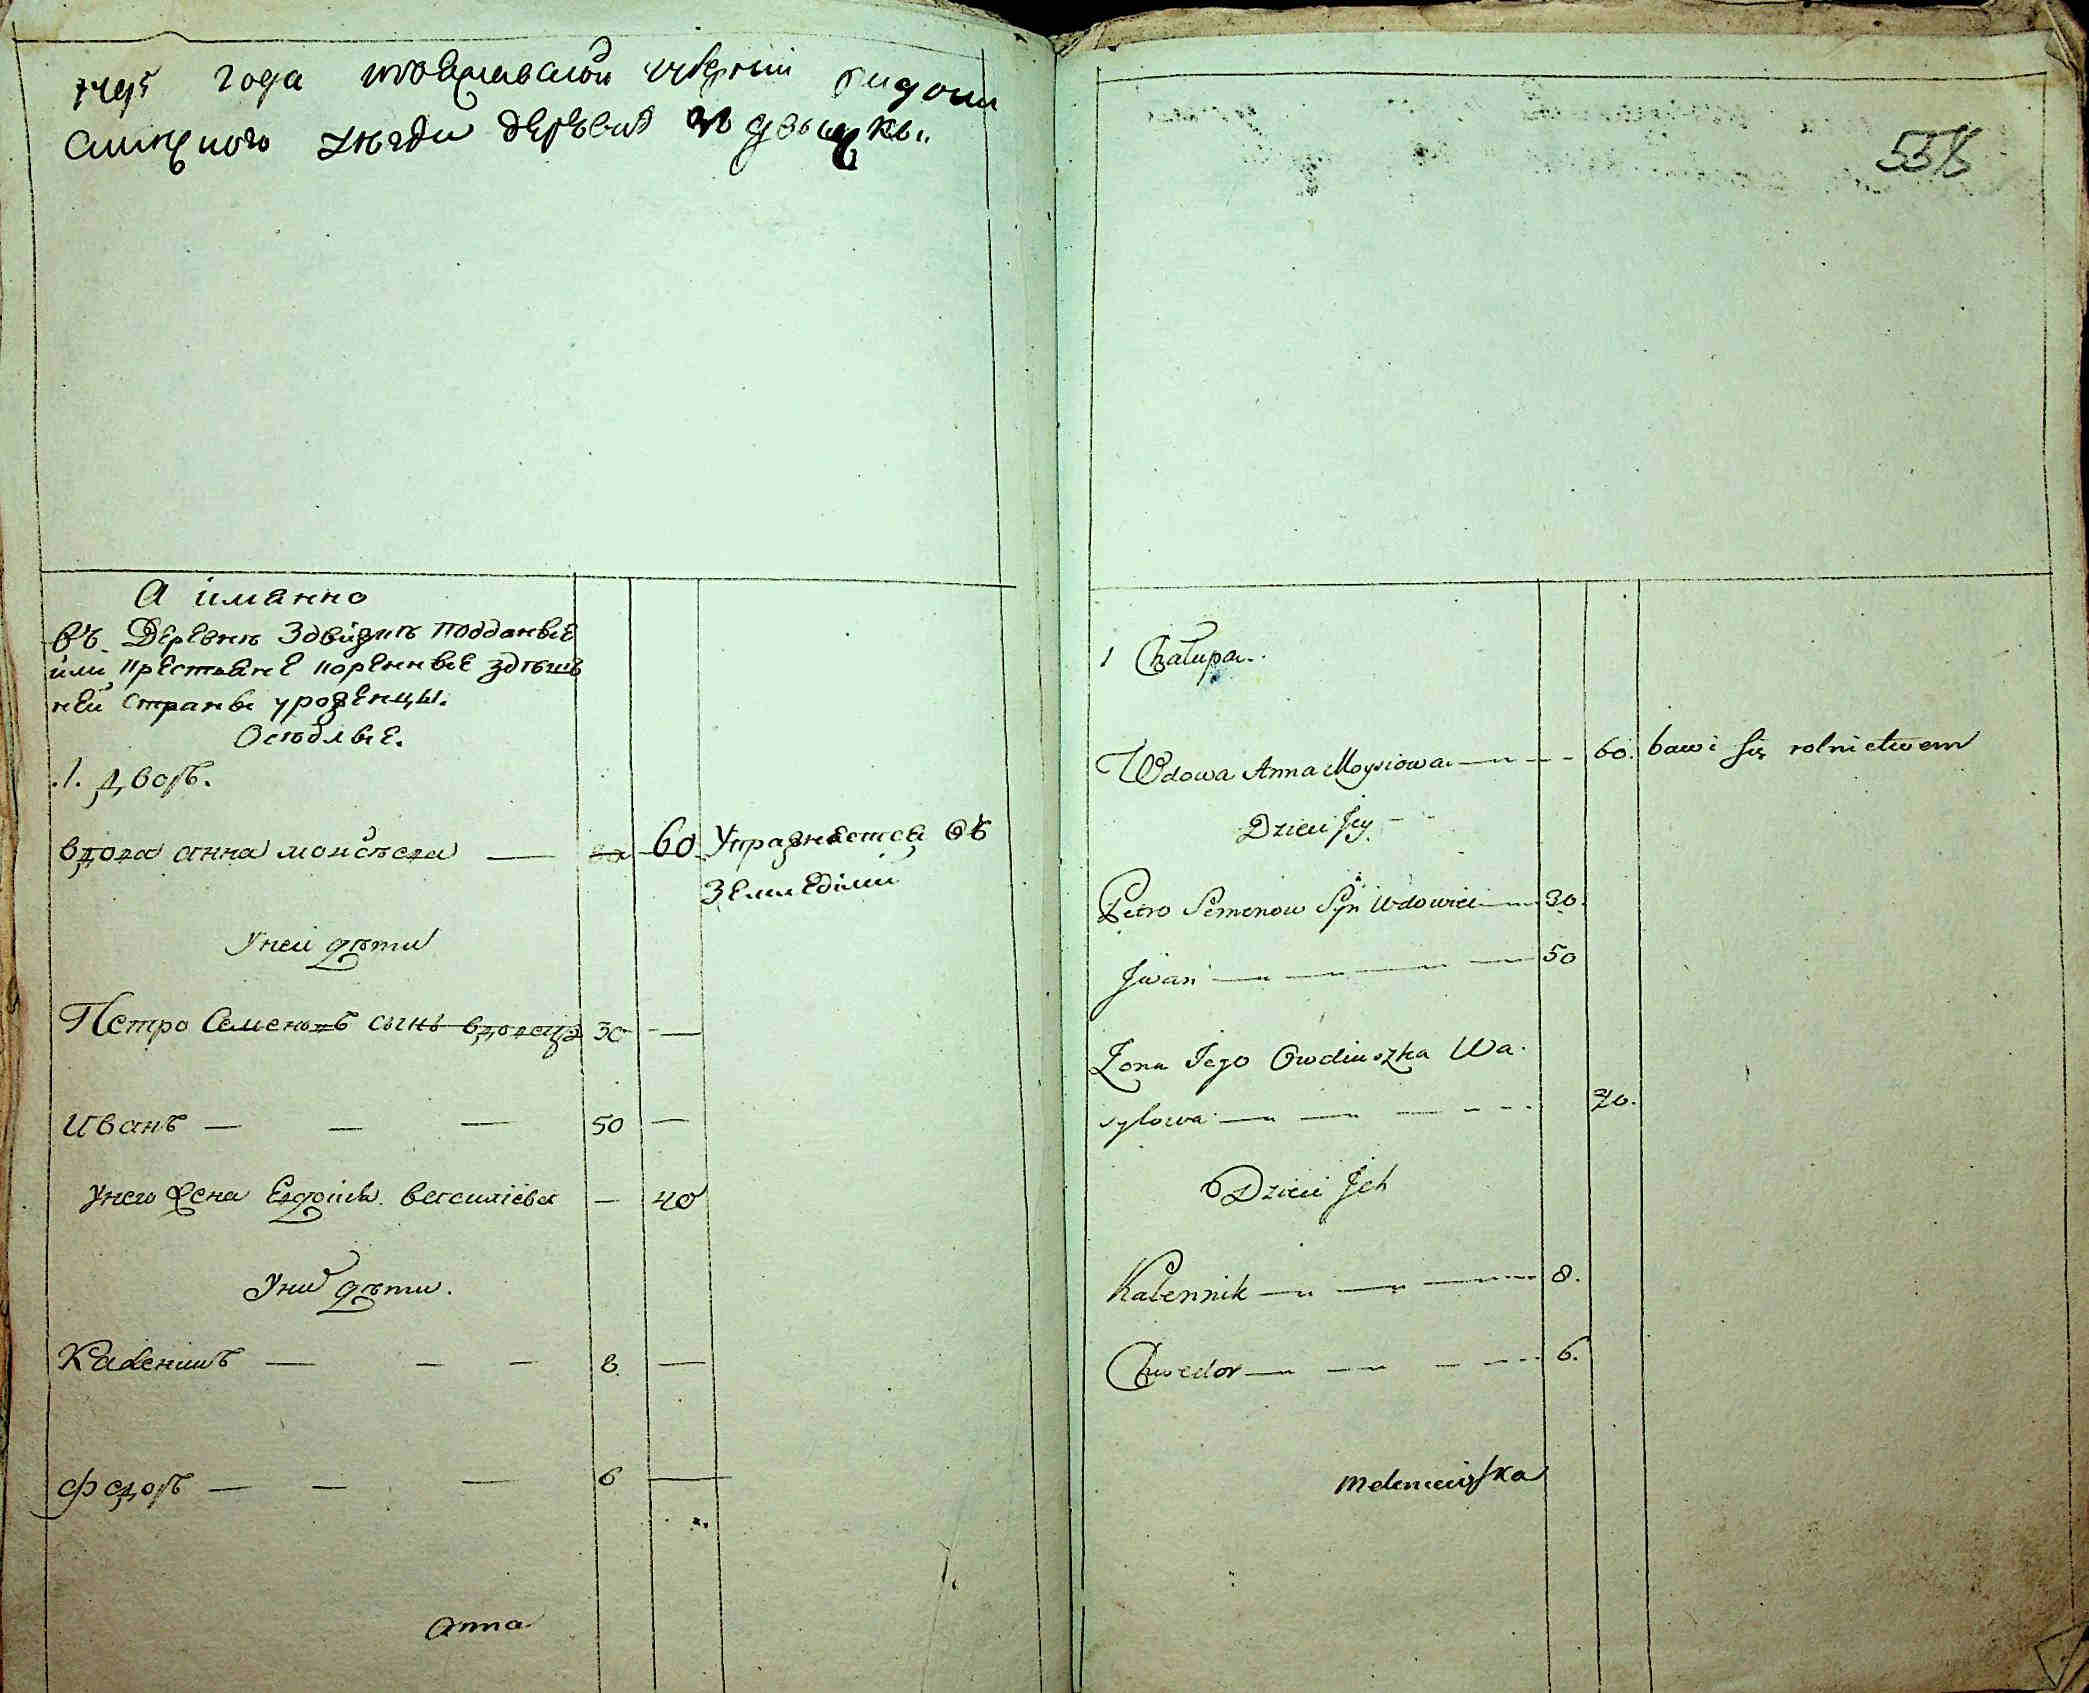 1795 года изяславской губернии радомы
слиского уезда деревня здвышкы
А иманно
въ Деревнѣ Здвижиѣ подданые
или крестьяне коренные здѣшъ
ней страны уроженцы.
Осѣдлые.
.1. дворъ.
вдова анна моисѣева — 60 Упражняется въ
земледѣлии
У ней дѣти
Петро Семеновъ сынъ вдовецъ 30 —
Иванъ — — — 50 —
У него жена Евдокиа василіева — 40
У них дѣти.
Каленикъ — — — 8. —
Федоръ — — — 6 —
Anna
1 Chałupa.
Wdowa Anna Moysiowa — 60. bawi się rolnictwem
Dzieci Jey
Petro Semenow Syn Wdowiec — 30.
Jwan — — — — 50
Zona Jego Owdiuszka Wa-
sylowa — — — — 40.
Dzieci Jch
Kalennik — — — 8.
Chwedor — — — 6.